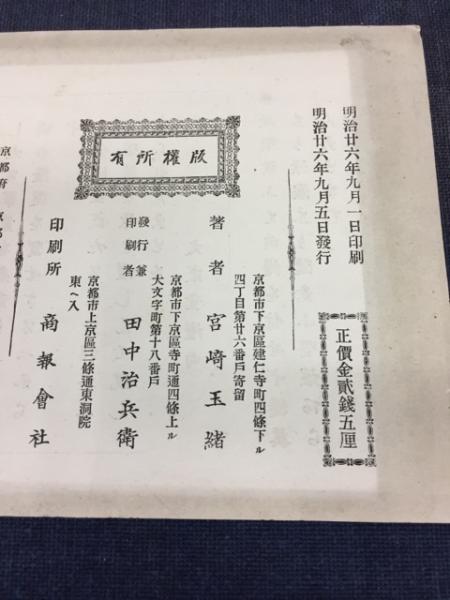 明治廿六年九月一日印刷
明治廿六年九月五日發行
正價金貳錢五厘
版權所有
京都市下京區建仁寺町四條下ル
四丁目第廿六番戶寄留
著者 宮崎玉緒
京都市下京區寺町通四條上ル
大文字町第十八番戶
發行兼印刷者 田中治兵衛
京都市上京區三條通東洞院
東ヘ入
印刷所 商報會社
京都府